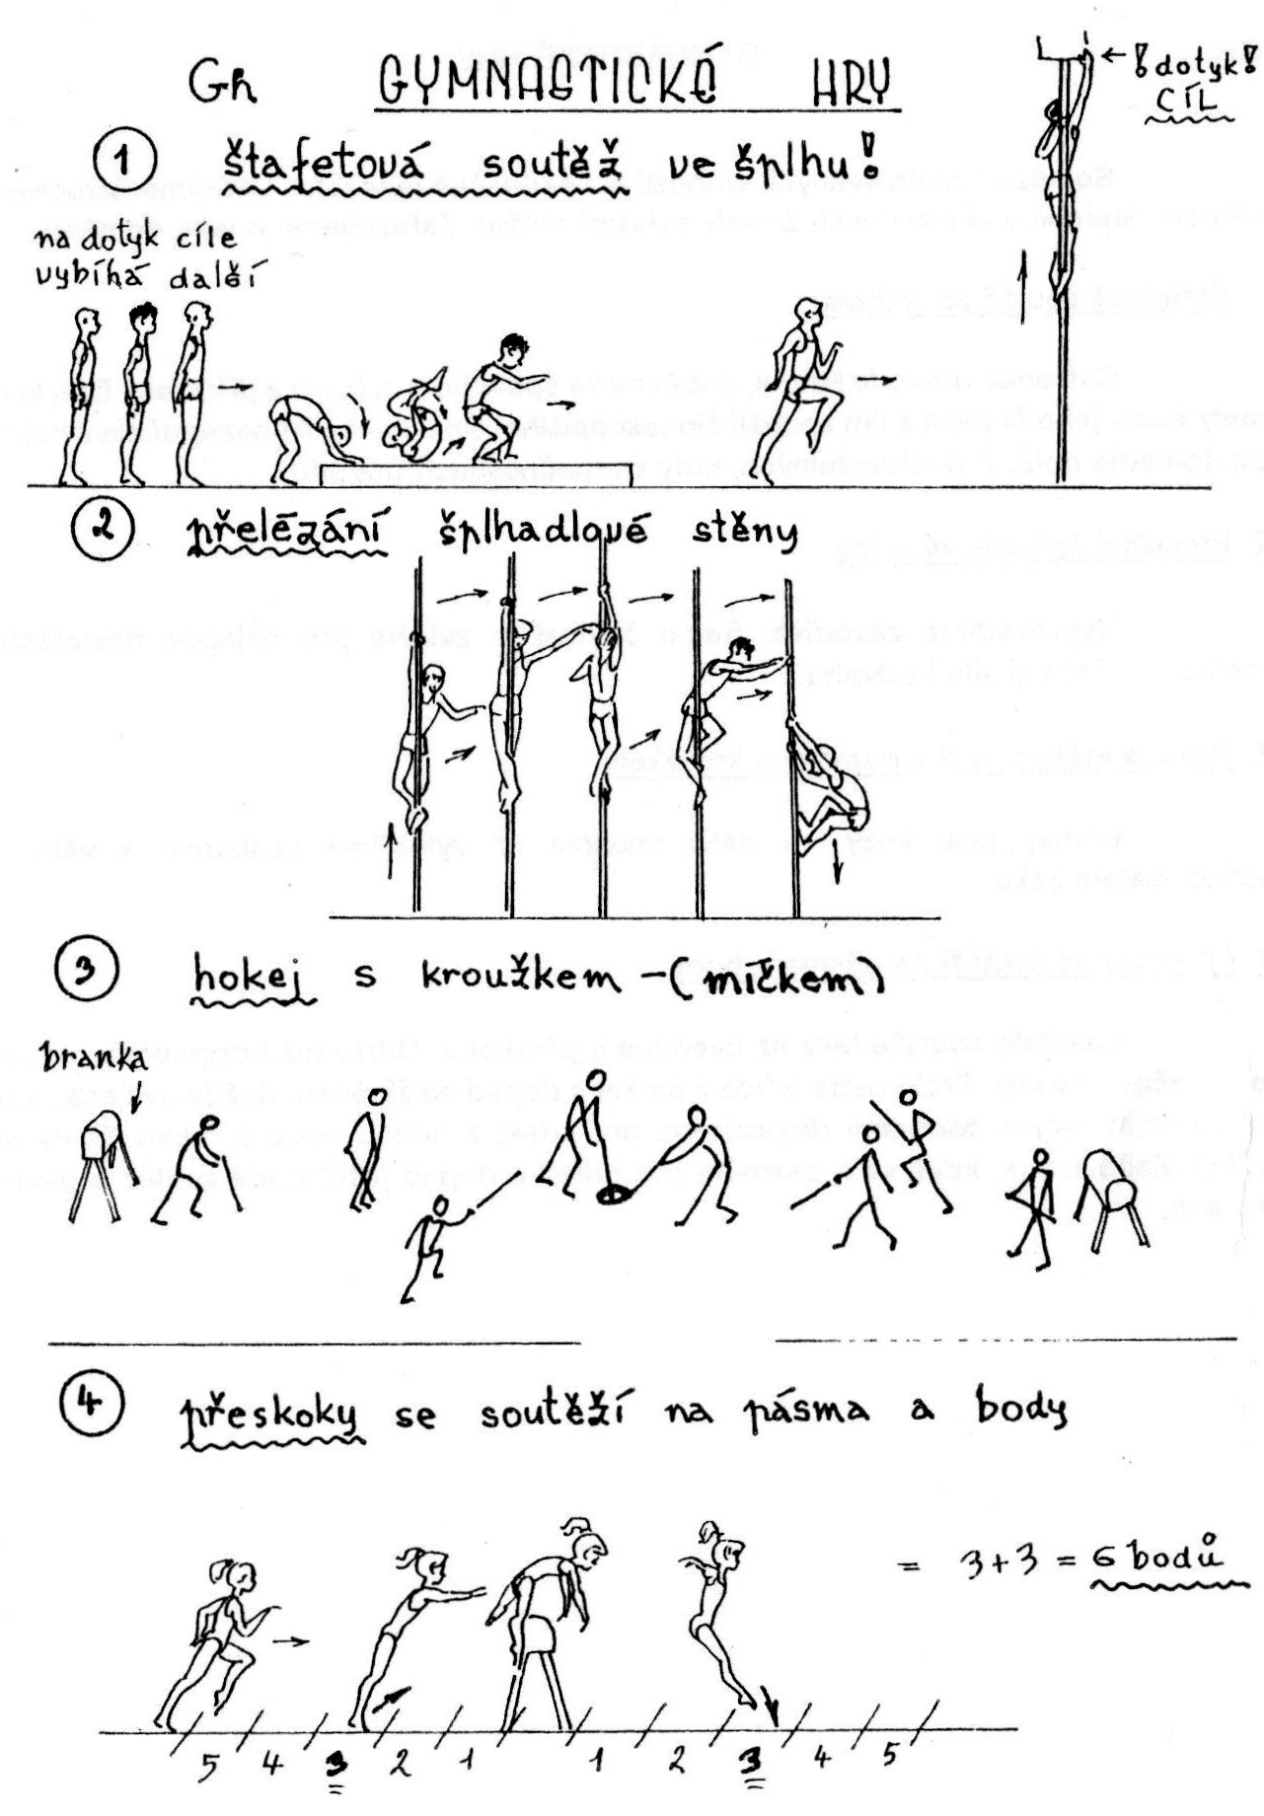 Gh GYMNASTICKÉ HRY
← !dotyk!
CÍL
1 štafetová soutěž ve šplhu!
na dotyk cíle
vybíhá další
2 přelézání šplhadlové stěny
3 hokej s kroužkem - (míčkem)
branka
4 přeskoky se soutěží na pásma a body
= 3+3 = 6 bodů
5 4 3 2 1 1 2 3 4 5